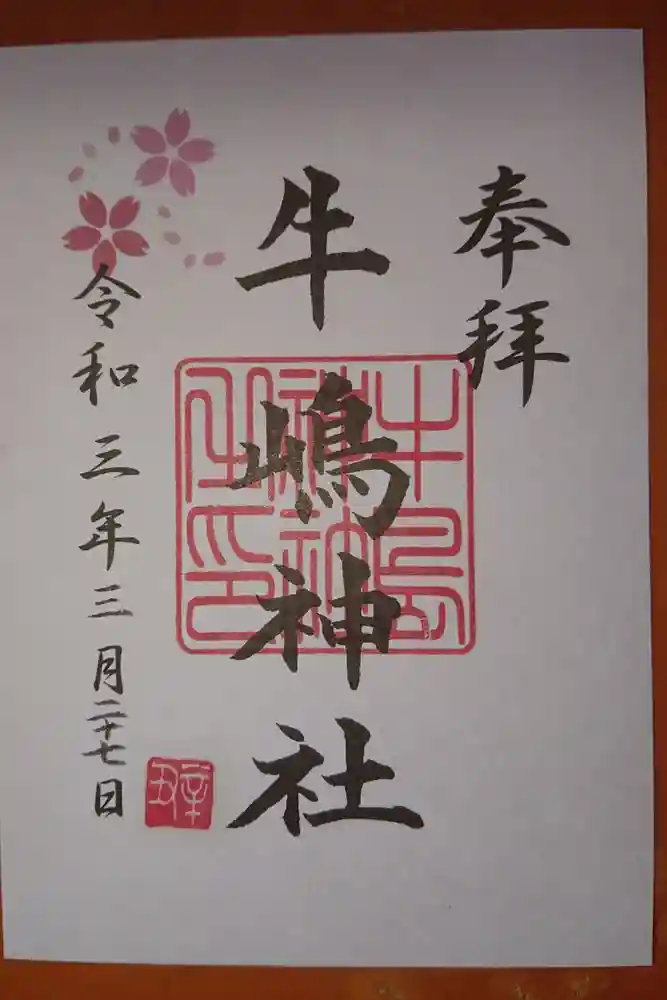 奉拝
牛嶋神社
令和三年三月二十七日
牛島神社之印
辛丑